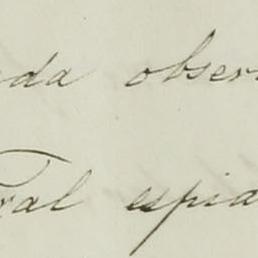 da obser
al espia